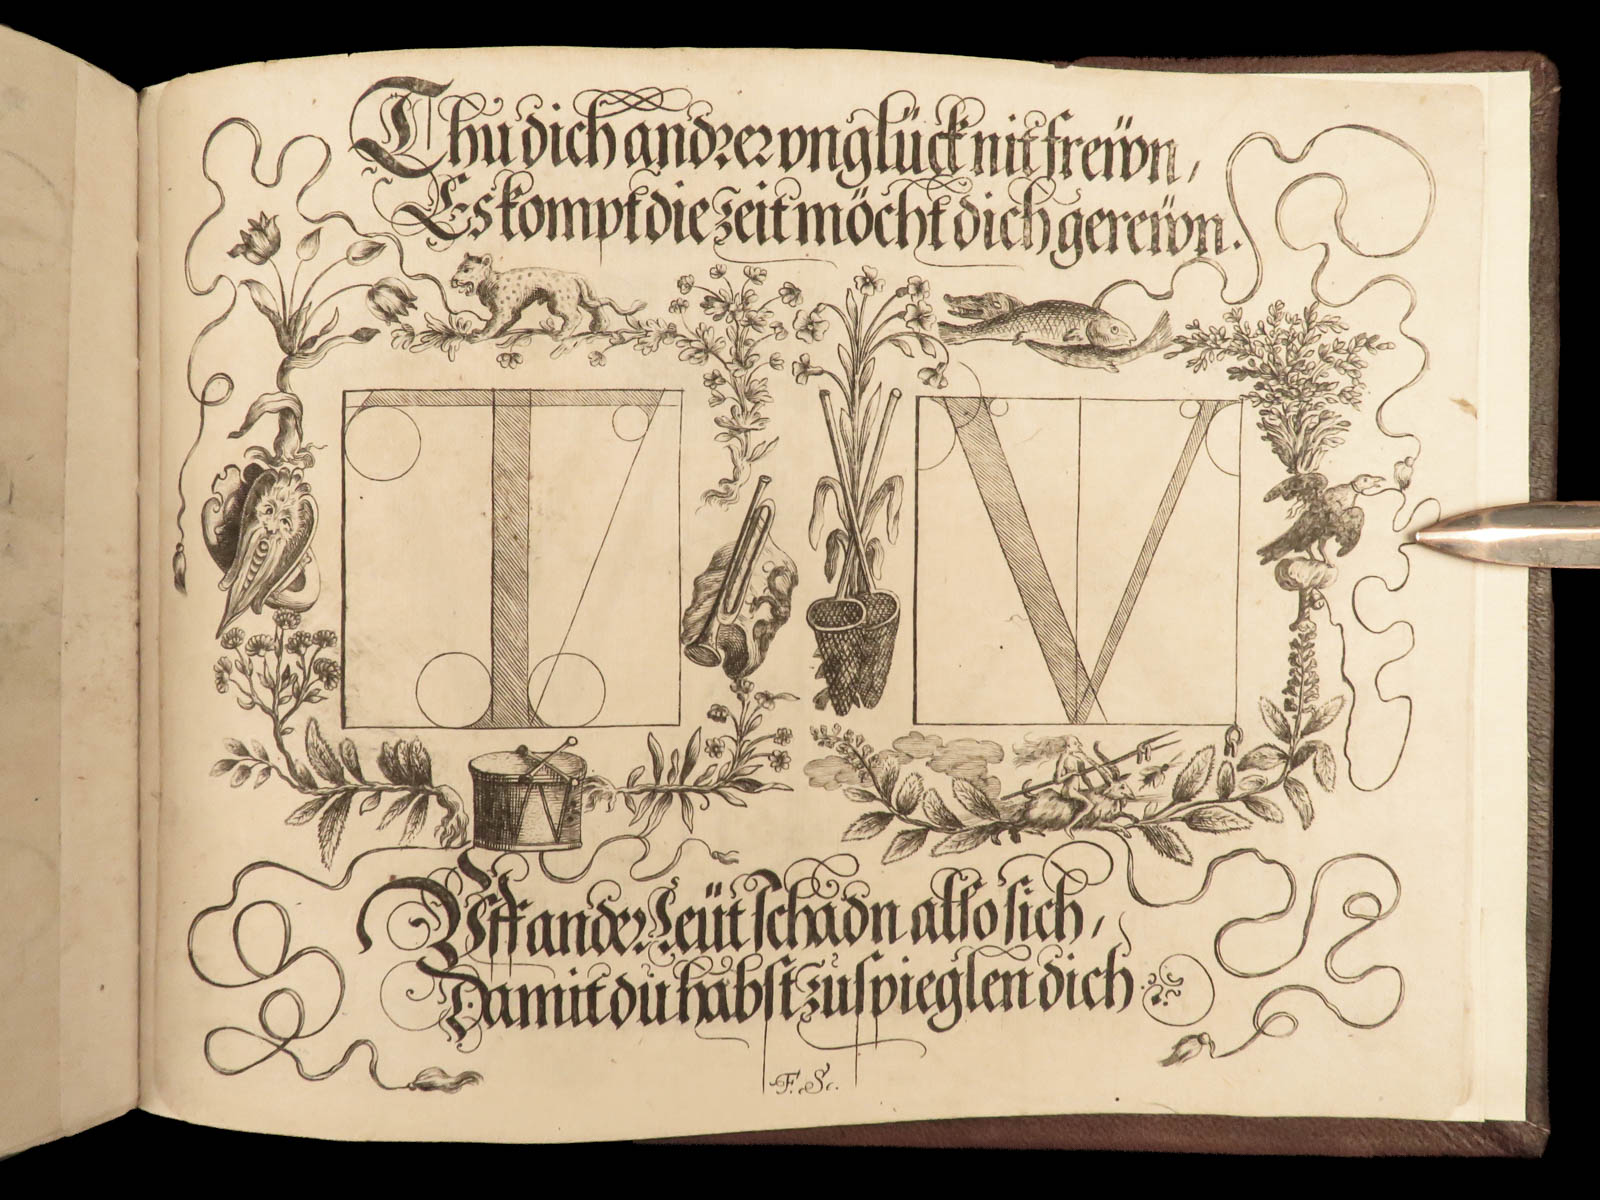 Thu dich andrer vnglück nit frewn,
Es kompt die zeit möcht dich gerewn.
T V
Vff ander Leüt schadn also sich,
Damit du habst zu spieglen dich
F. S.